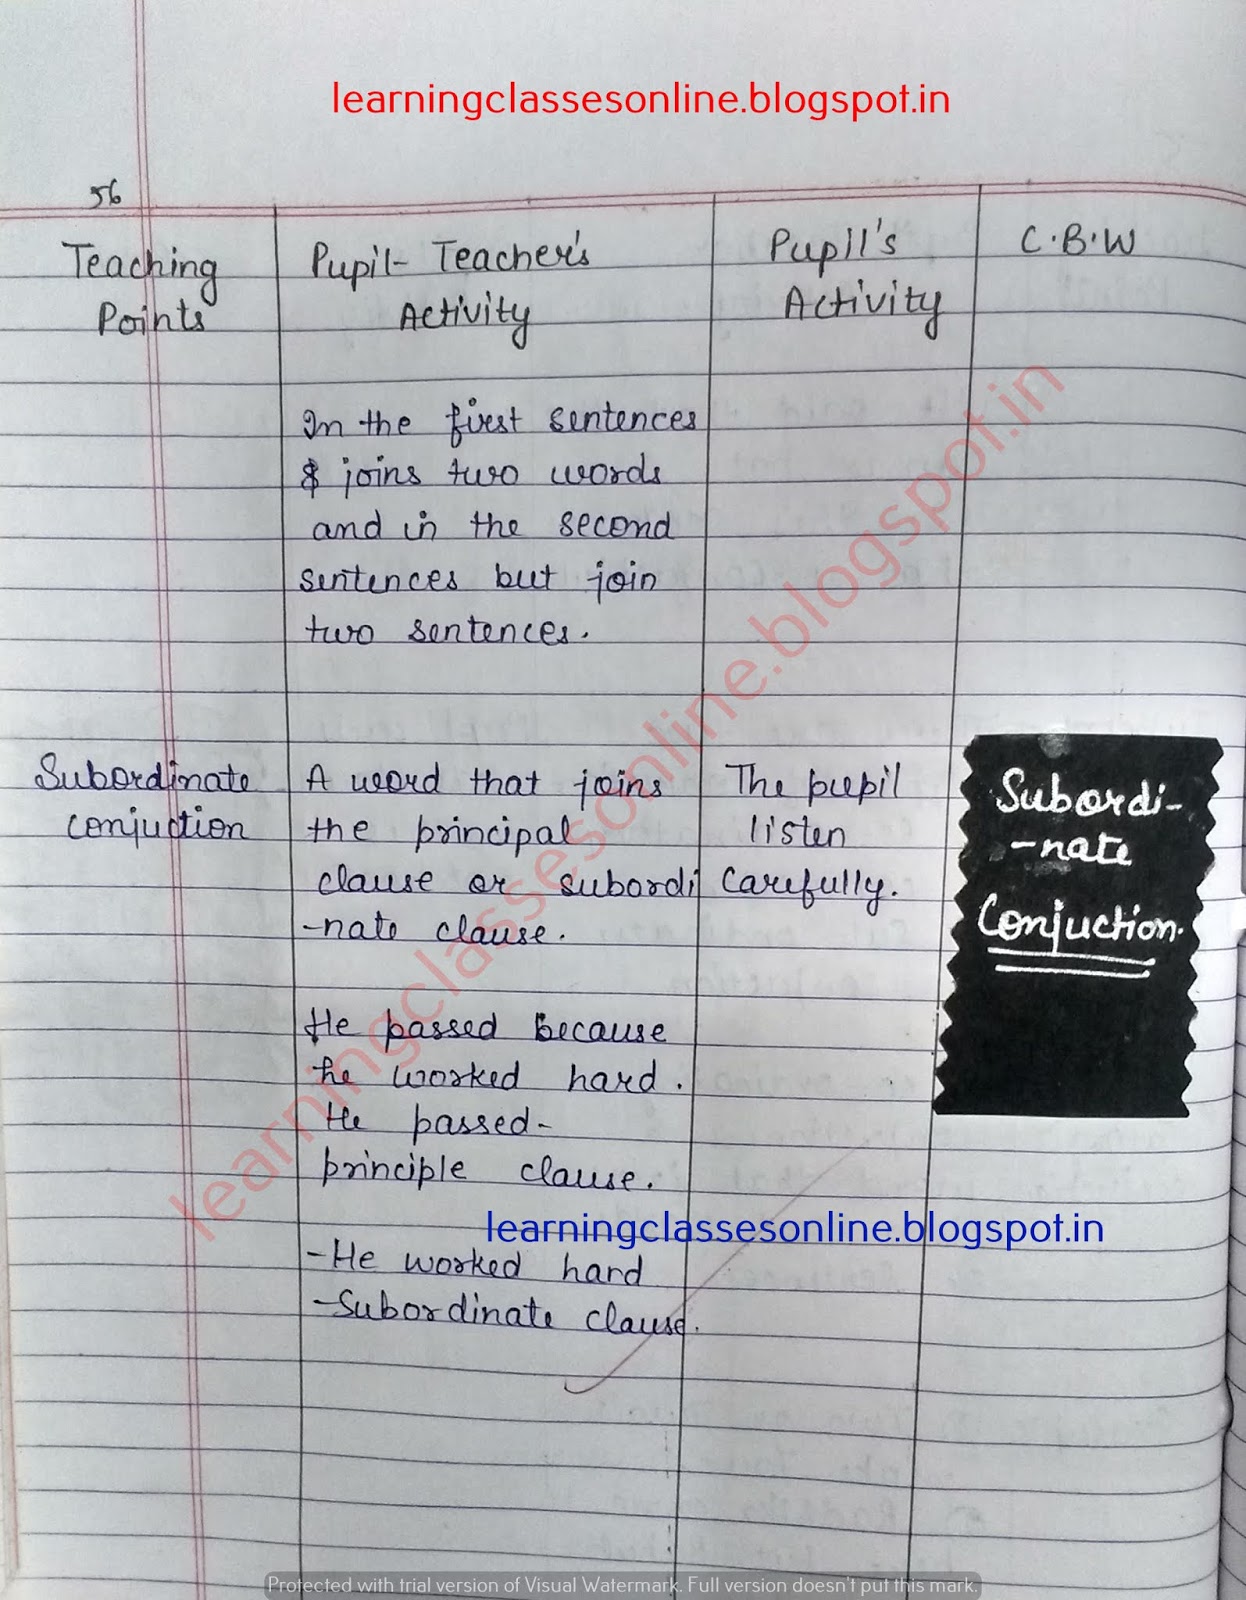 learningclassesonline.blogspot.in
56
Teaching
Points
Pupil- Teacher's
Activity
Pupil's
Activity
C.B.W
In the first sentences
& joins two words
and in the second
sentences but join
two sentences.
Subordinate
conjuction
A word that joins
the principal
clause or subordi
-nate clause.
The pupil
listen
Carefully.
Subordi-
-nate
Conjuction.
He passed because
he worked hard.
He passed-
principle clause.
learningclassesonline.blogspot.in
-He worked hard
-Subordinate clause.
learningclassesonline.blogspot.in
Protected with trial version of Visual Watermark. Full version doesn't put this mark.